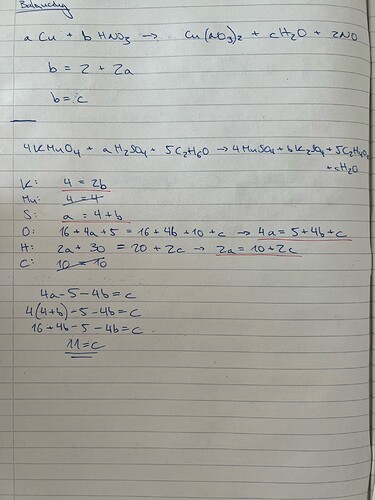 a Cu + b HNO₃ → Cu(NO₃)₂ + cH₂O + 2NO
b = 2 + 2a
b = c
4KMnO₄ + aH₂SO₄ + 5C₂H₆O → 4MnSO₄ + bK₂SO₄ + 5C₂H₄O₂
+ cH₂O
K: 4 = 2b
Mn: 4 = 4
S: a = 4 + b
O: 16 + 4a + 5 = 16 + 4b + 10 + c → 4a = 5 + 4b + c
H: 2a + 30 = 20 + 2c → 2a = 10 + 2c
C: 10 = 10
4a - 5 - 4b = c
4(4+b) - 5 - 4b = c
16 + 4b - 5 - 4b = c
11 = c